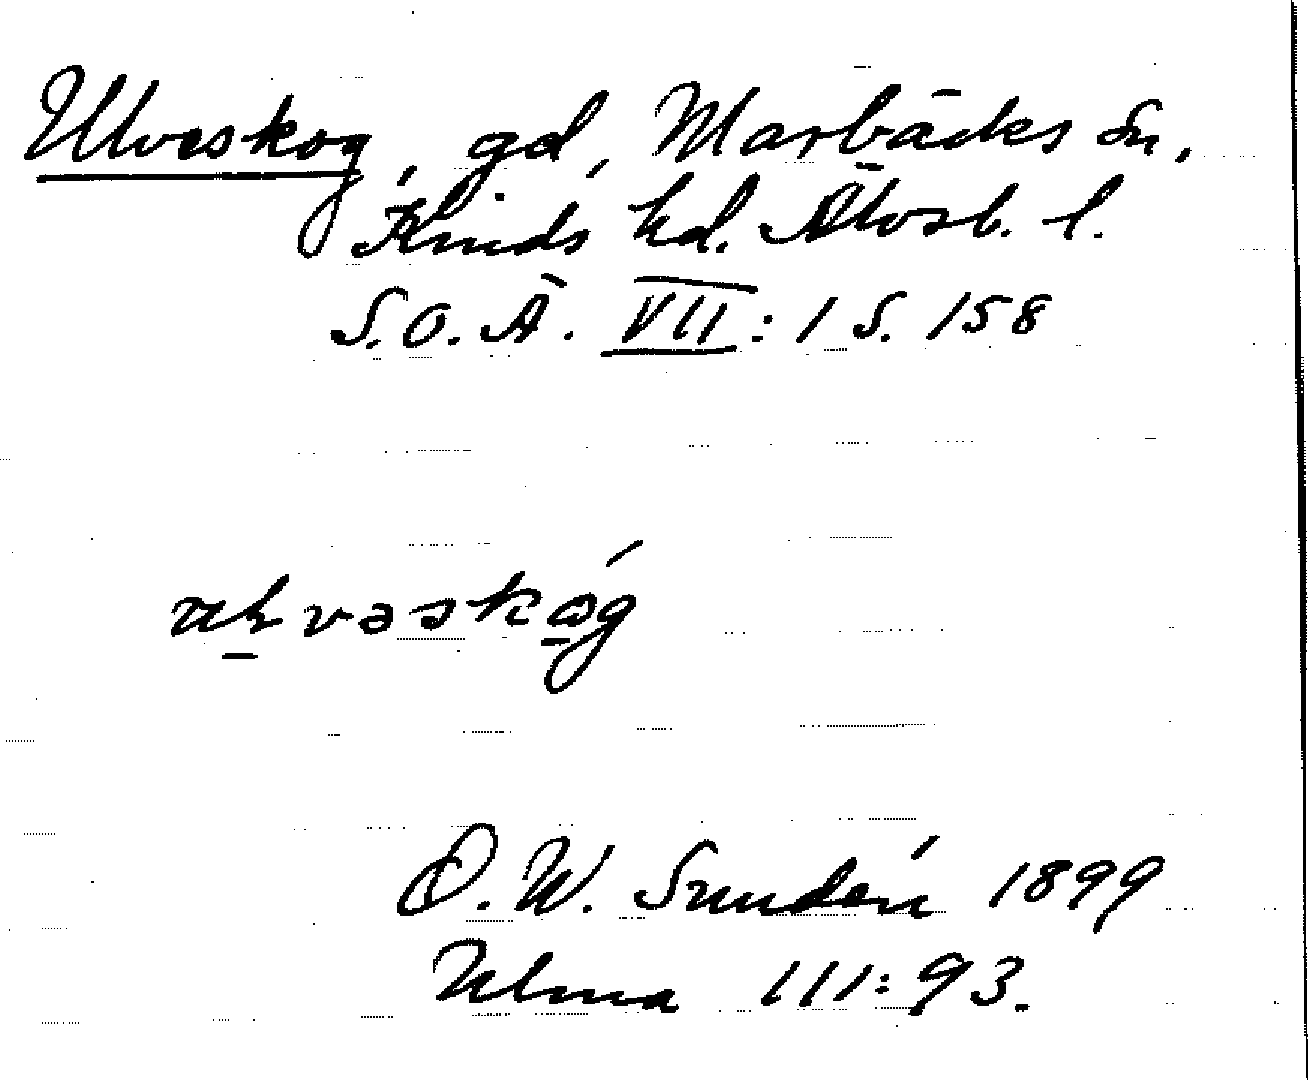 Ulveskog, gd, Marbäcks sn,
Kinds hd. Älvsb. l.
S.O.Ä. VII: 1 s. 158
uḻvəskóg
D. W. Sundén 1899
Ulma 111:93.